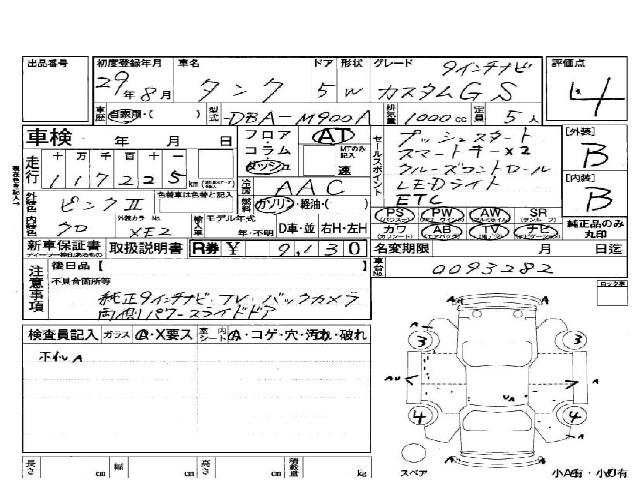 出品番号 初度登録年月 車名 ドア 形状 グレード 評価点
29年8月 タンク 5 W 9インチナビ カスタムGS 4
車歴 自家用・( ) 型式 DBA-M900A 排気量 1000cc 定員 5人
車検 年 月 日 フロア・コラム・ダッシュ AT MTのみ記入 速
セールスポイント
プッシュスタート
スマートキー×2
クルーズコントロール
LEDライト
ETC
[外装] B
[内装] B
走行 十 万 千 百 十 一
117225 km
冷房 AAC
外装色 ピンクⅢ 色替車は色替と記入 燃料 ガソリン・軽油・( )
PS PW AW SR
カワ AB TV ナビ
純正品のみ丸印
内装色 クロ 外装カラーNo. XE2 輸入車 モデル年式 年・不明 D車・並 右H・左H
新車保証書 取扱説明書 R券 ¥ 9,130 名変期限 月 日迄
注意事項 後日品【 】 車台No. 0093282
不具合箇所等
純正9インチナビ・TV・バックカメラ
両側パワースライドドア
ロック車
検査員記入 ガラス A・X要ス 室内シート A・コゲ・穴・汚れ・破れ
ホイルA
A 3 3 A
AU A
UA
4 4
A A
長さ cm 幅 cm 高さ cm 積載量 kg スペア 小A有・小U有